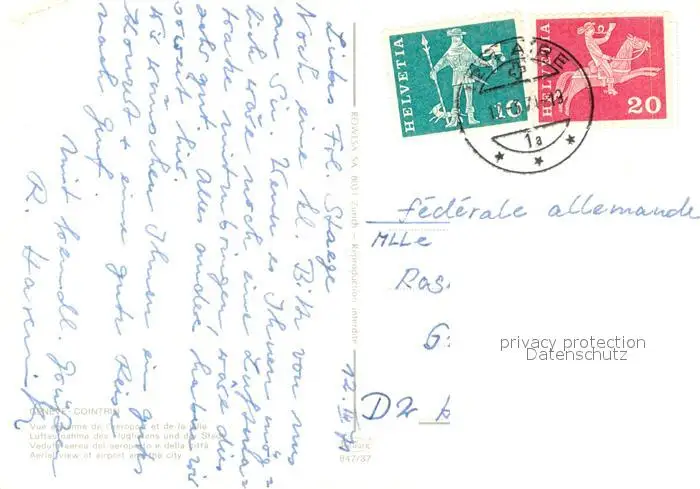 Liebes Frl. Staege
Noch eine kl. Bitte von uns
an Sie. Wenn es Ihnen mög=
lich wäre noch eine Luftma=
tratze mitzubringen, wäre dies
sehr gut. Alles andere haben wir
soweit hier.
Wir wünschen Ihnen ein gutes
+ eine gute Reise
nach Genf.
Mit freundl. Grüßen
R.
12. III. 71
GENÈVE-COINTRIN
Vue aérienne de l'aéroport et de la ville
Luftaufnahme des Flughafens und der Stadt
Veduta aerea del aeroporto e della città
Aerial view of airport and the city
ROWISA SA 8031 Zürich — Reproduction interdite
847/37
HELVETIA 10
HELVETIA 20
1a
fédérale allemande
MLLe
Ros
G
D2
privacy protection
Datenschutz